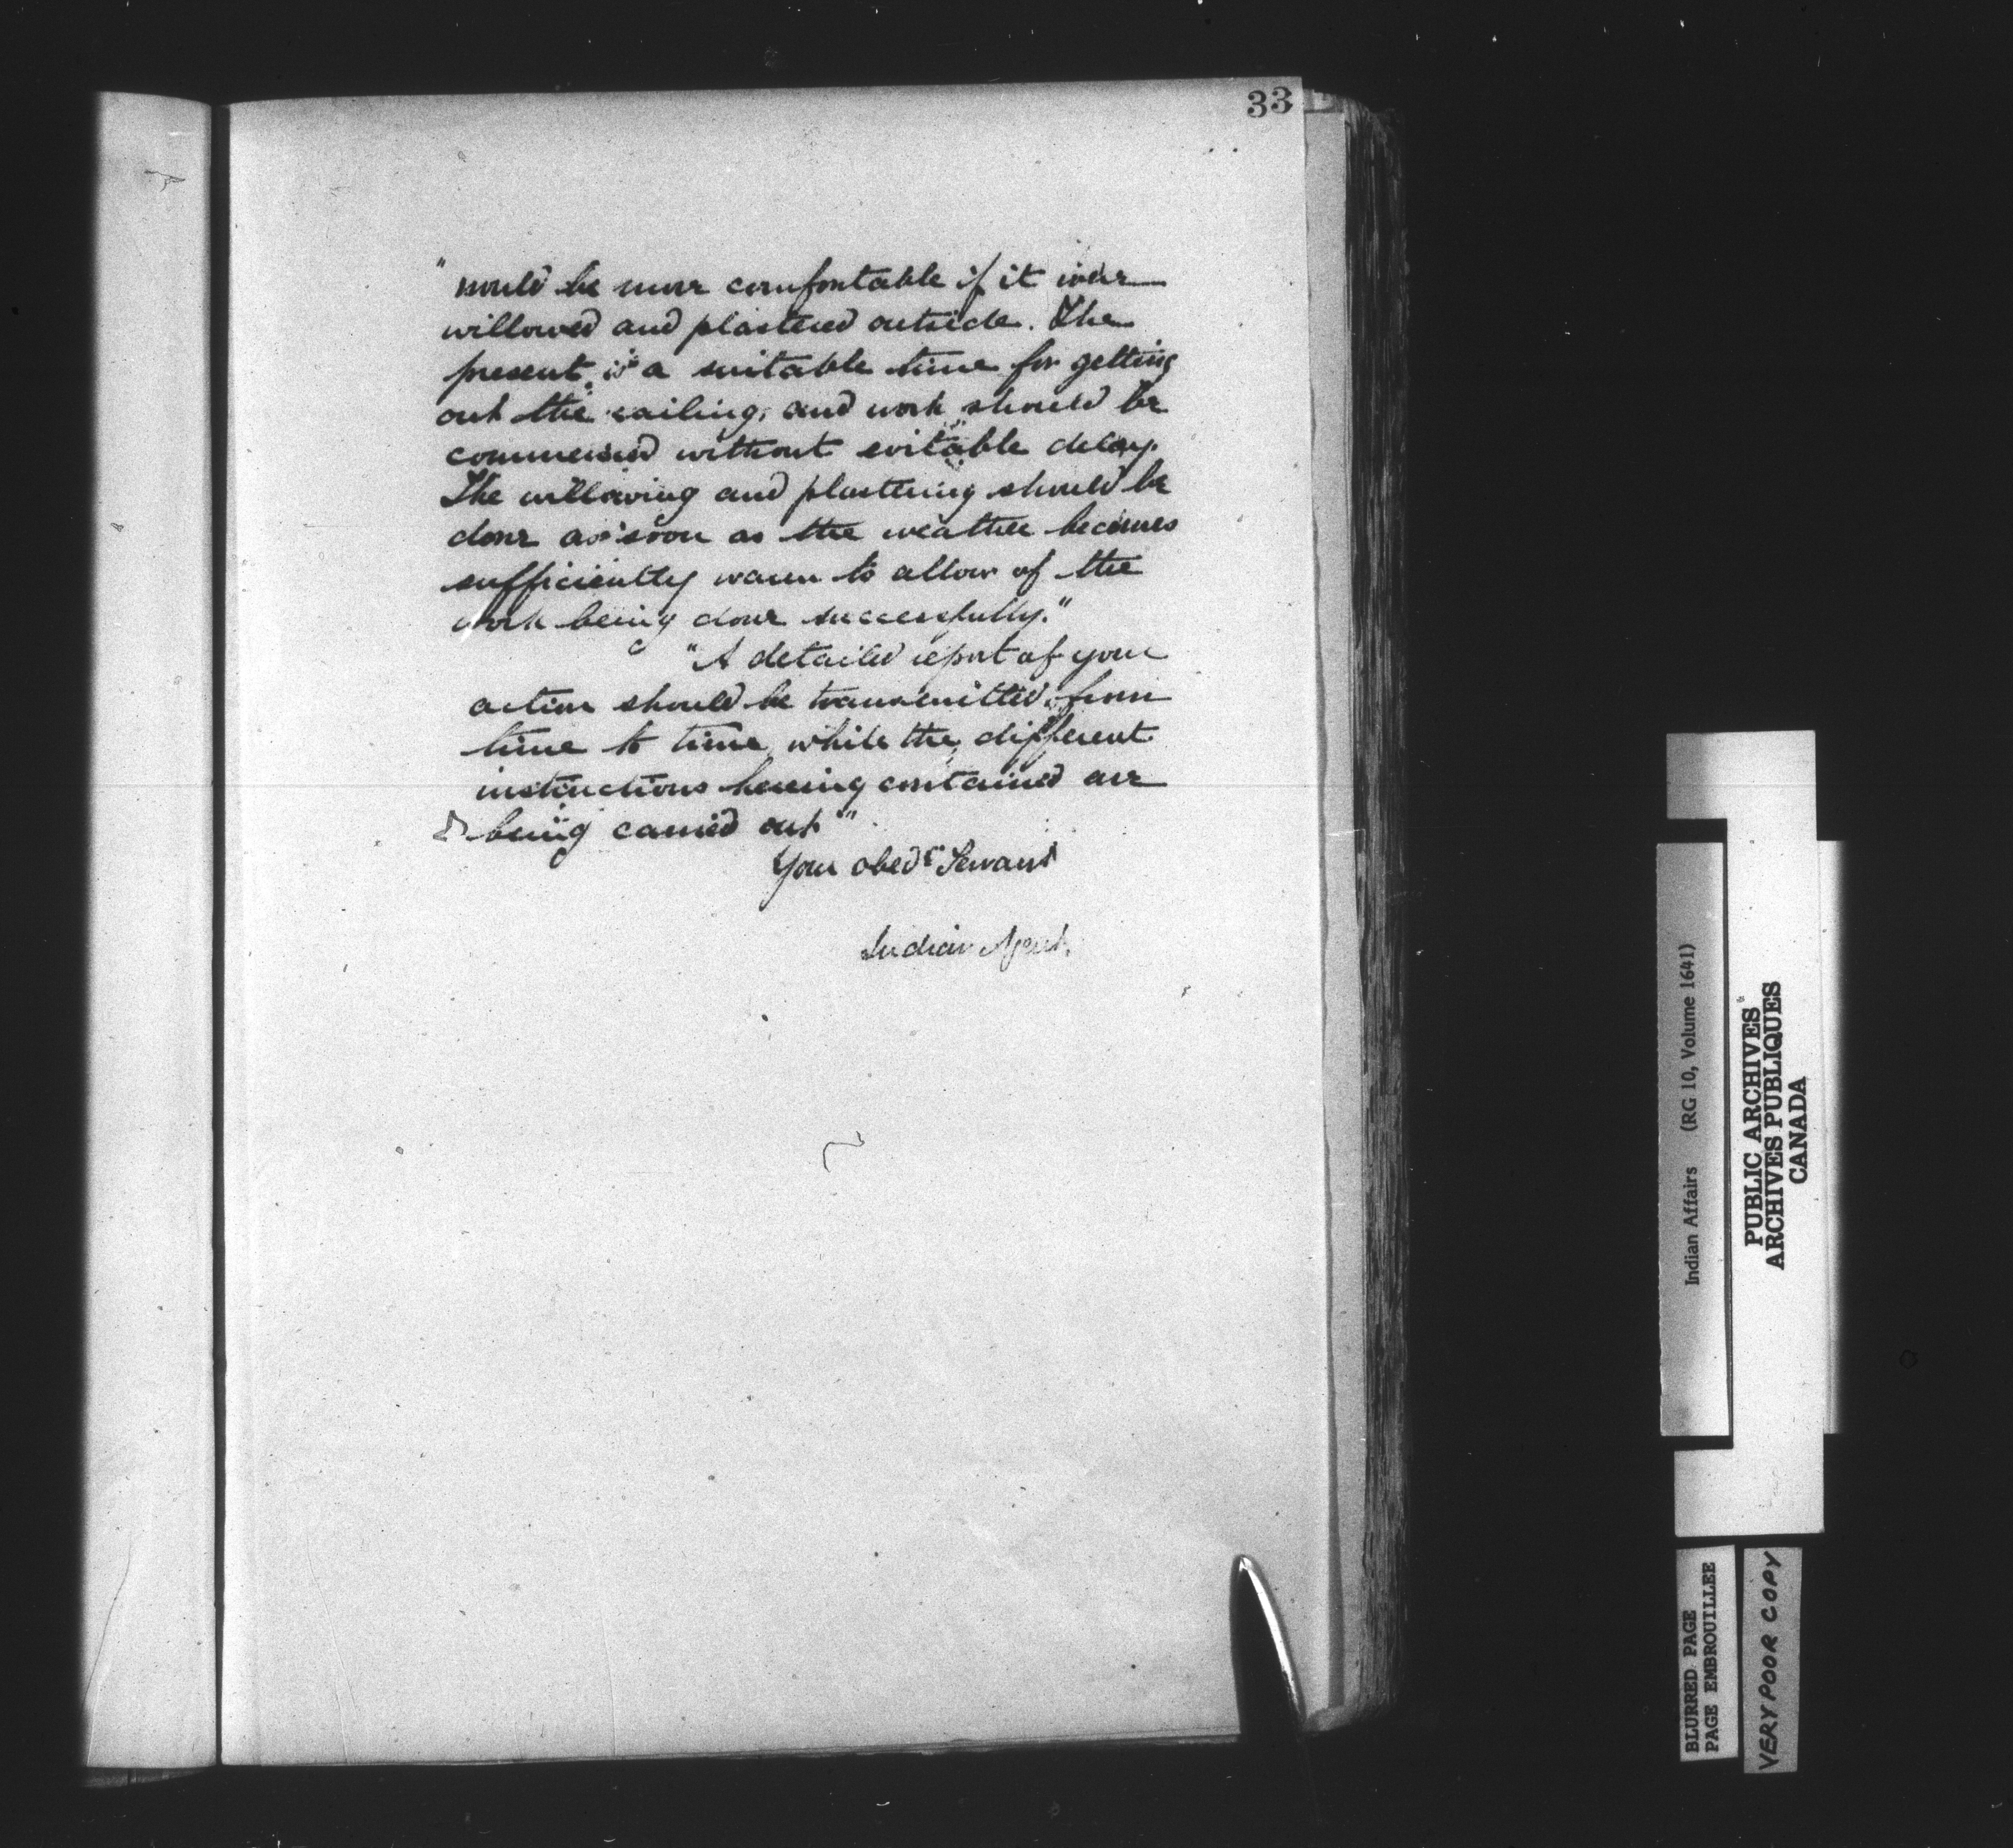 33
"would be more comfortable if it were
willowed and plastered outside. The
present is a suitable time for getting
out the railing, and work should be
commenced without evitable delay.
The willowing and plastering should be
done as soon as the weather becomes
sufficiently warm to allow of the
work being done successfully."
"A detailed report of your
action should be transmitted from
time to time, while the different
instructions hereing contained are
being carried out"
Your obedt Servant
Indian Agent.
Indian Affairs (RG 10, Volume 1641)
PUBLIC ARCHIVES
ARCHIVES PUBLIQUES
CANADA
BLURRED PAGE
PAGE EMBROUILLEE
VERY POOR COPY